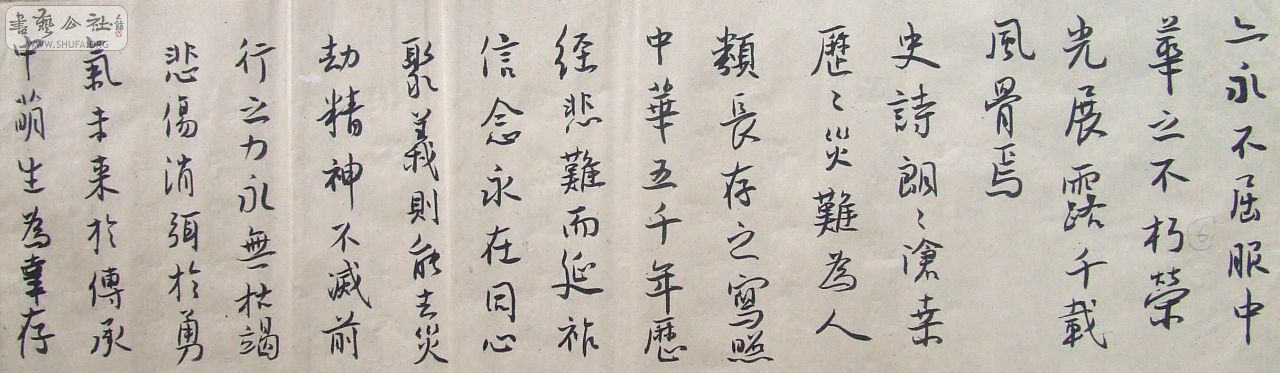 亡永不屈服中
華之不朽榮
光展露千載
風骨焉
史詩朗々滄桒
歷々災難為人
類長存之寫照
中華五千年歷
經悲難而延祚
信念永在同心
聚義則能去災
劫精神不滅前
行之力永無枯竭
悲傷消弭於勇
氣未来於傳承
中萌生為存
書藝公社
WWW.SHUFA.ORG
6